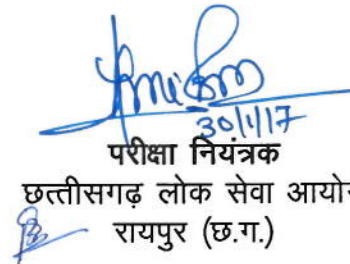 30/1/17
परीक्षा नियंत्रक
छत्तीसगढ़ लोक सेवा आयो
रायपुर (छ.ग.)